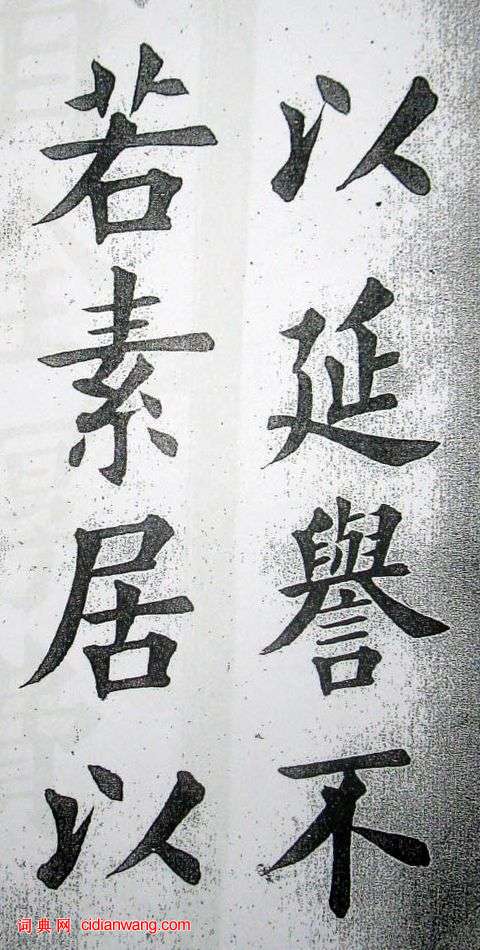 以延譽不
若素居以
词典网 cidianwang.com